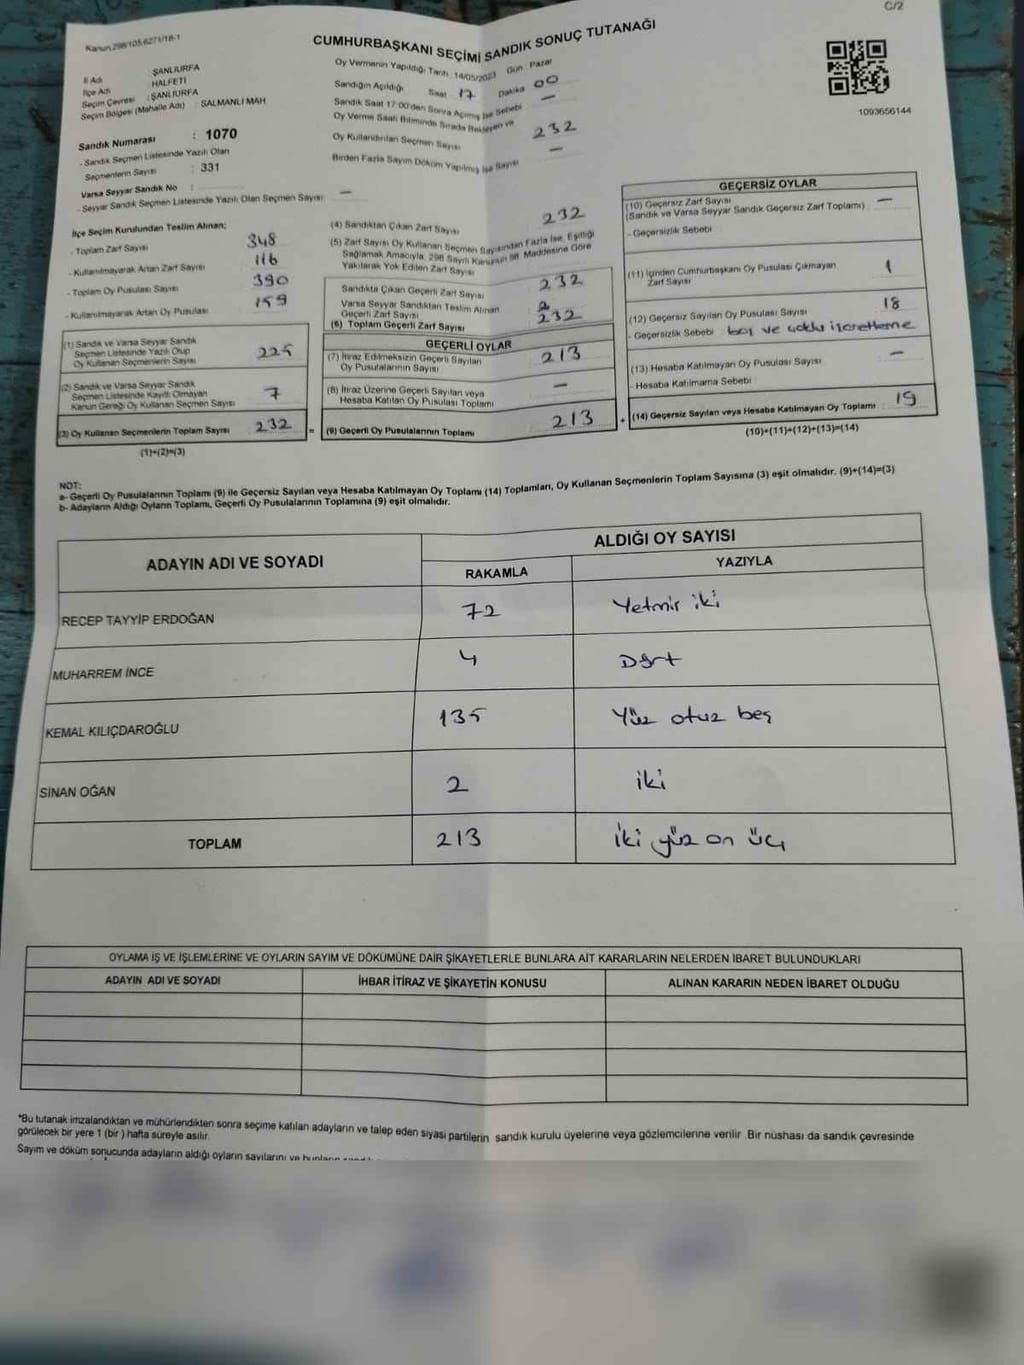 C/2
Kanun 298/105,6271/18-1
CUMHURBAŞKANI SEÇİMİ SANDIK SONUÇ TUTANAĞI
1093656144
İl Adı ŞANLIURFA
İlçe Adı HALFETİ
Seçim Çevresi : ŞANLIURFA
Seçim Bölgesi (Mahalle Adı) : SALMANLI MAH
Sandık Numarası : 1070
- Sandık Seçmen Listesinde Yazılı Olan
Seçmenlerin Sayısı : 331
Varsa Seyyar Sandık No :
- Seyyar Sandık Seçmen Listesinde Yazılı Olan Seçmen Sayısı : —
Oy Vermenin Yapıldığı Tarih : 14/05/2023 Gün : Pazar
Sandığın Açıldığı Saat 17 Dakika 00
Sandık Saat 17:00'den Sonra Açılmış İse Sebebi —
Oy Verme Saati Bitiminde Sırada Bekleyen ve
Oy Kullandırılan Seçmen Sayısı 232
Birden Fazla Sayım Döküm Yapılmış İse Sayısı —
İlçe Seçim Kurulundan Teslim Alınan;
- Toplam Zarf Sayısı 348
- Kullanılmayarak Artan Zarf Sayısı 116
- Toplam Oy Pusulası Sayısı 390
- Kullanılmayarak Artan Oy Pusulası 159
(1) Sandık ve Varsa Seyyar Sandık
Seçmen Listesinde Yazılı Olup
Oy Kullanan Seçmenlerin Sayısı 225
(2) Sandık ve Varsa Seyyar Sandık
Seçmen Listesinde Kayıtlı Olmayan
Kanun Gereği Oy Kullanan Seçmen Sayısı 7
(3) Oy Kullanan Seçmenlerin Toplam Sayısı 232
(1)+(2)=(3)
(4) Sandıktan Çıkan Zarf Sayısı 232
(5) Zarf Sayısı Oy Kullanan Seçmen Sayısından Fazla İse, Eşitliği
Sağlamak Amacıyla, 298 Sayılı Kanunun 98. Maddesine Göre
Yakılarak Yok Edilen Zarf Sayısı
Sandıkta Çıkan Geçerli Zarf Sayısı 232
Varsa Seyyar Sandıktan Teslim Alınan
Geçerli Zarf Sayısı
(6) Toplam Geçerli Zarf Sayısı 232
GEÇERLİ OYLAR
(7) İtiraz Edilmeksizin Geçerli Sayılan
Oy Pusulalarının Sayısı 213
(8) İtiraz Üzerine Geçerli Sayılan veya
Hesaba Katılan Oy Pusulası Toplamı —
= (9) Geçerli Oy Pusulalarının Toplamı 213
GEÇERSİZ OYLAR
(10) Geçersiz Zarf Sayısı —
(Sandık ve Varsa Seyyar Sandık Geçersiz Zarf Toplamı)
- Geçersizlik Sebebi
(11) İçinden Cumhurbaşkanı Oy Pusulası Çıkmayan
Zarf Sayısı 1
(12) Geçersiz Sayılan Oy Pusulası Sayısı 18
- Geçersizlik Sebebi boş ve çoklu işaretleme
(13) Hesaba Katılmayan Oy Pusulası Sayısı —
- Hesaba Katılmama Sebebi
+ (14) Geçersiz Sayılan veya Hesaba Katılmayan Oy Toplamı 19
(10)+(11)+(12)+(13)=(14)
NOT:
a- Geçerli Oy Pusulalarının Toplamı (9) ile Geçersiz Sayılan veya Hesaba Katılmayan Oy Toplamı (14) Toplamları, Oy Kullanan Seçmenlerin Toplam Sayısına (3) eşit olmalıdır. (9)+(14)=(3)
b- Adayların Aldığı Oyların Toplamı, Geçerli Oy Pusulalarının Toplamına (9) eşit olmalıdır.
ADAYIN ADI VE SOYADI ALDIĞI OY SAYISI
RAKAMLA YAZIYLA
RECEP TAYYİP ERDOĞAN 72 Yetmiş iki
MUHARREM İNCE 4 Dört
KEMAL KILIÇDAROĞLU 135 Yüz otuz beş
SİNAN OĞAN 2 iki
TOPLAM 213 İki yüz on üç
OYLAMA İŞ VE İŞLEMLERİNE VE OYLARIN SAYIM VE DÖKÜMÜNE DAİR ŞİKAYETLERLE BUNLARA AİT KARARLARIN NELERDEN İBARET BULUNDUKLARI
ADAYIN ADI VE SOYADI İHBAR İTİRAZ VE ŞİKAYETİN KONUSU ALINAN KARARIN NEDEN İBARET OLDUĞU
*Bu tutanak imzalandıktan ve mühürlendikten sonra seçime katılan adayların ve talep eden siyasi partilerin sandık kurulu üyelerine veya gözlemcilerine verilir. Bir nüshası da sandık çevresinde
görülecek bir yere 1 (bir) hafta süreyle asılır.
Sayım ve döküm sonucunda adayların aldığı oyların sayılarını ve